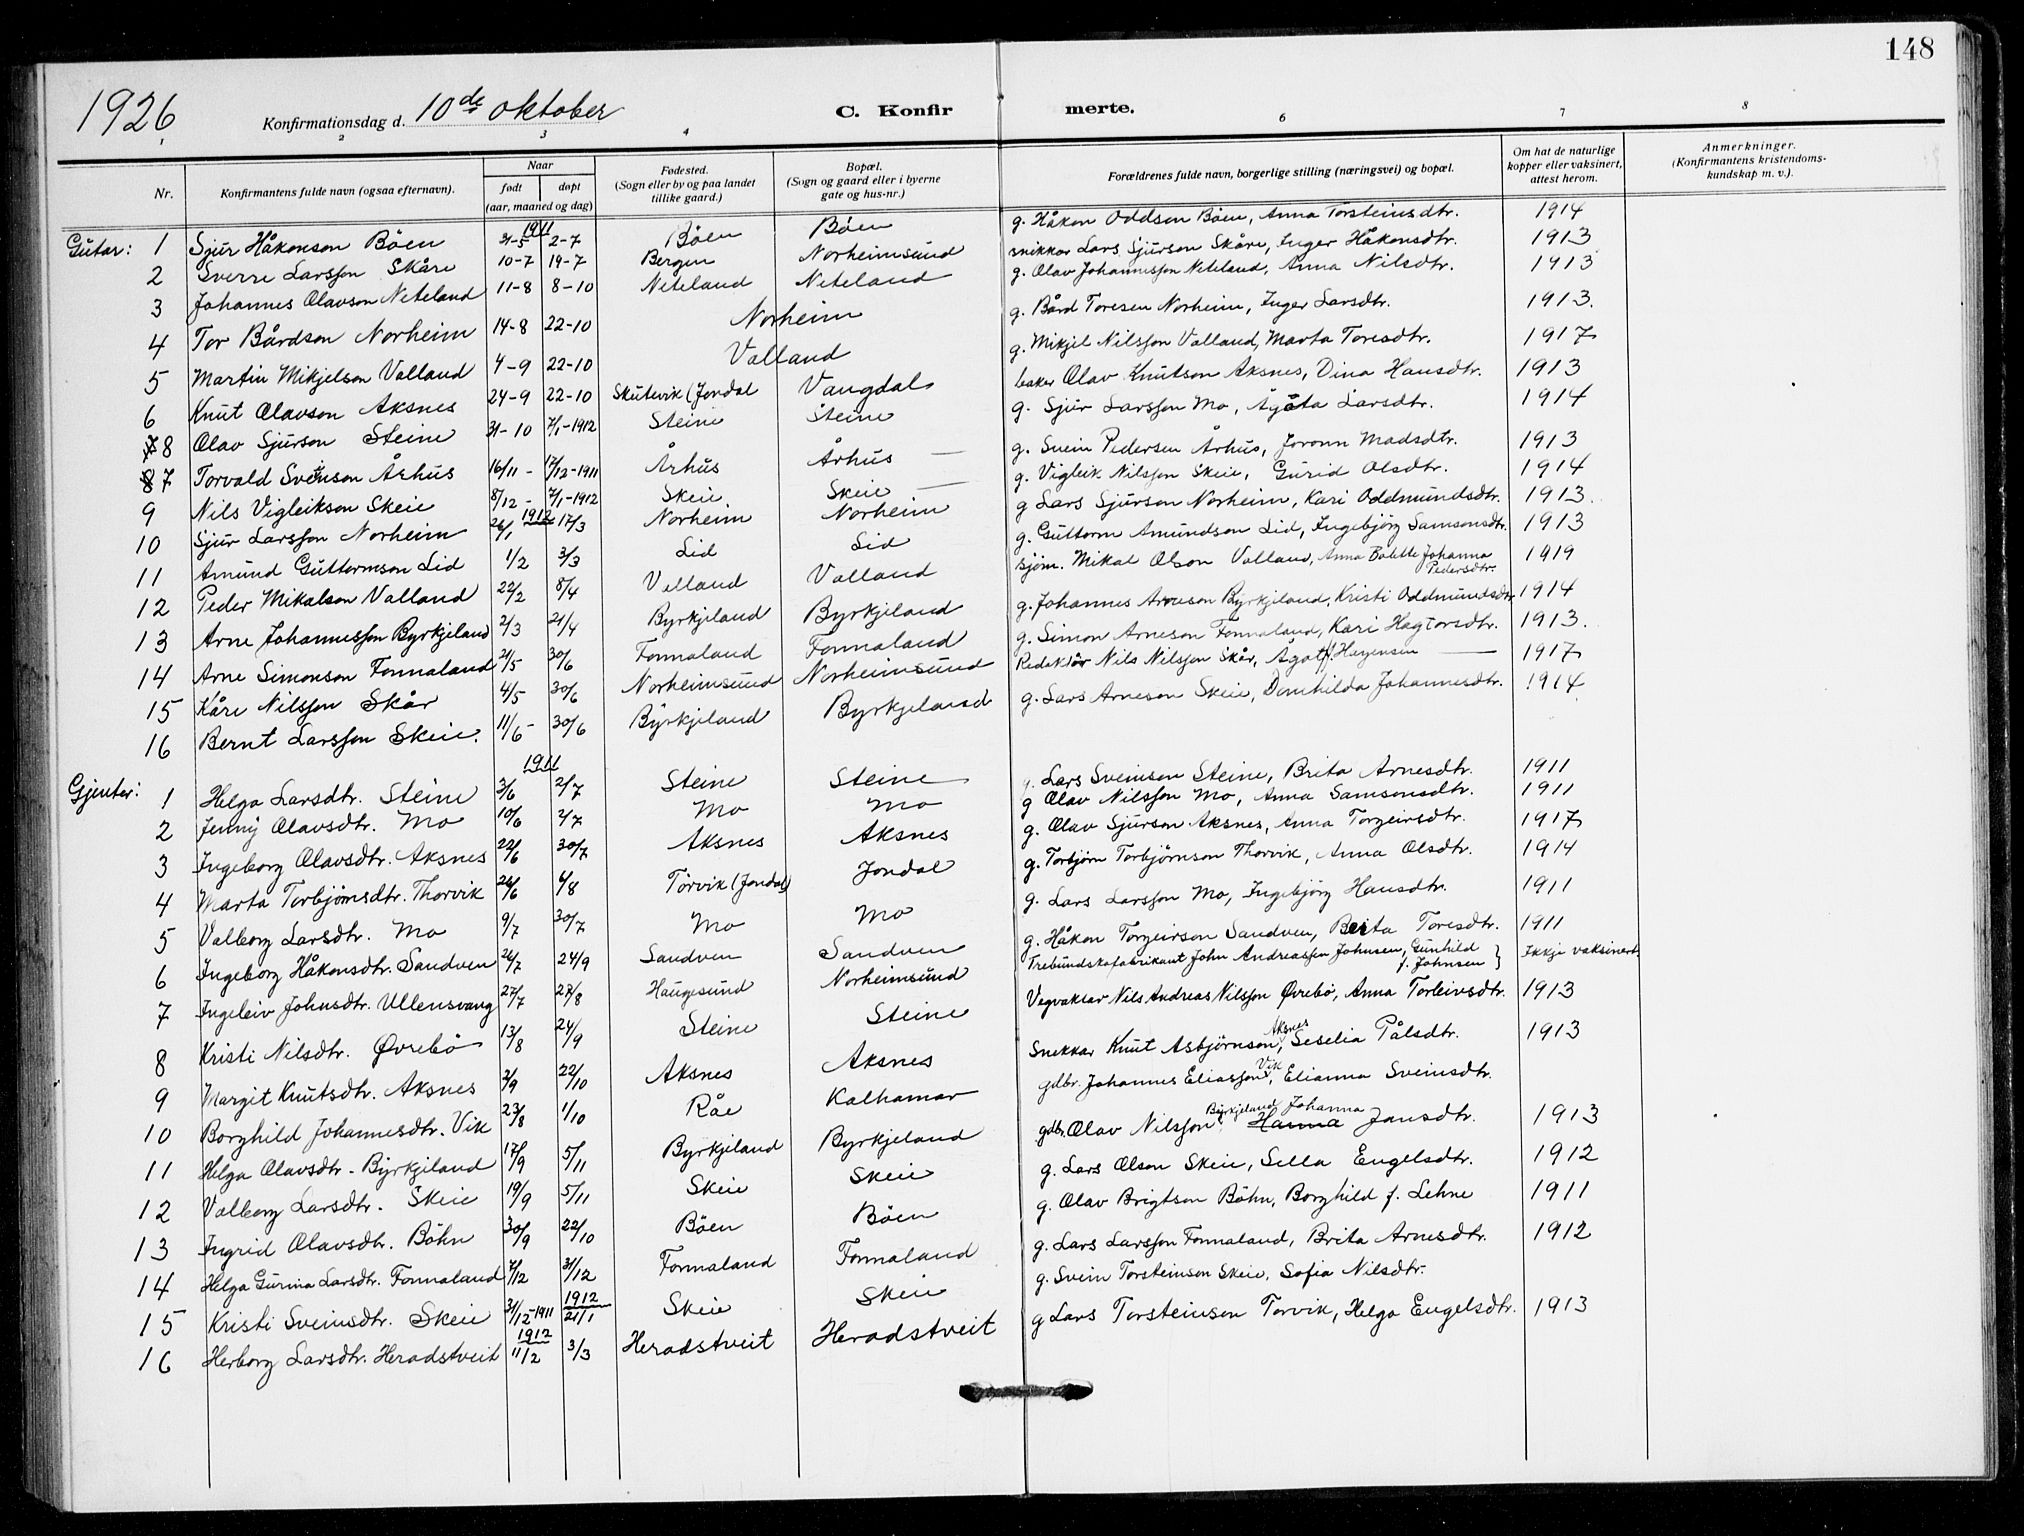 148
1926 Konfirmationsdag d. 10de oktober C. Konfirmerte.
1 2 3 4 6 7 8
Nr. Konfirmantens fulde navn (ogsaa efternavn). Naar født døpt (aar, maaned og dag) Fødested. (Sogn eller by og paa landet tillike gaard.) Bopæl. (Sogn og gaard eller i byerne gate og hus-nr.) Forældrenes fulde navn, borgerlige stilling (næringsvei) og bopæl. Om hat de naturlige kopper eller vaksinert, attest herom. Anmerkninger. (Konfirmantens kristendoms-kundskap m. v.).
Gutar: 1 Sjur Håkonson Böen 1911 31-5 2-7 Böen Böen g. Håkon Oddson Böen, Anna Torsteinsdtr. 1914
2 Sverre Larsson Skåre 10-7 19-7 Bergen Norheimsund snikkar Lars Sjurson Skåre, Inger Håkonsdtr. 1913
3 Johannes Olavson Neteland 11-8 8-10 Neteland Neteland g. Olav Johannesson Neteland, Anna Nilsdtr. 1913
4 Tor Bårdson Norheim 14-8 22-10 Norheim g. Bård Toresen Norheim, Inger Larsdtr. 1913.
5 Martin Mikjelson Valland 4-9 22-10 Valland g. Mikjel Nilsson Valland, Marta Toresdtr. 1917
6 Knut Olavson Aksnes 24-9 22-10 Skutevik (Jondal Vangdal baker Olav Knutson Aksnes, Dina Hansdtr. 1913
8 Olav Sjurson Steine 31-10 7/1-1912 Steine Steine g. Sjur Larsson Mo, Agata Larsdtr. 1914
7 Torvald Sveinson Århus 16/11 - 17/12-1911 Århus Århus — g. Svein Pedersen Århus, Joronn Madsdtr. 1913
9 Nils Vigleikson Skeie 8/12 - 7/1-1912 Skeie Skeie — g. Vigleik Nilsson Skeie, Gurid Olsdtr. 1914
10 Sjur Larsson Norheim 1912 26/1 17/3 Norheim Norheim g Lars Sjurson Norheim, Kari Oddmundsdtr. 1913.
11 Amund Guttormson Lid 1/2 3/3 Lid Lid g. Guttorm Amundson Lid, Ingebjörg Samsonsdtr. 1913
12 Peder Mikalson Valland 22/2 8/4 Valland Valland sjöm. Mikal Olson Valland, Anna Bolette Johanna Pedersdtr. 1919
13 Arne Johannesson Byrkjeland 2/3 21/4 Byrkjeland Byrkjeland g. Johannes Arneson Byrkjeland, Kristi Oddmundsdtr. 1914
14 Arne Simonson Fonnaland 21/5 30/6 Fonnaland Fonnaland g. Simon Arneson Fonnaland, Kari Hagtorsdtr. 1913.
15 Kåre Nilsson Skår 4/5 30/6 Norheimsund Norheimsund Redaktör Nils Nilsson Skår, Agot f. Hagensen — 1917
16 Bernt Larsson Skeie. 11/6 - 30/6 Byrkjeland Byrkjeland g. Lars Arneson Skeie, Domhilda Johannesdtr. 1914
Gjenter: 1 Helga Larsdtr. Steine 1911 3/6 2/7 Steine Steine g. Lars Sveinson Steine, Brita Arnesdtr. 1911
2 Jenny Olavsdtr. Mo 10/6 2/7 Mo Mo g Olav Nilsson Mo, Anna Samsonsdtr. 1911
3 Ingeborg Olavsdtr. Aksnes 22/6 30/7 Aksnes Aksnes g. Olav Sjurson Aksnes, Anna Torgeirsdtr. 1917
4 Marta Torbjörnsdtr. Thorvik 26/6 6/8 Törvik (Jondal) Jondal g. Torbjörn Torbjörnson Thorvik, Anna Olsdtr. 1914
5 Valborg Larsdtr. Mo 9/7 30/7 Mo Mo g. Lars Larsson Mo, Ingebjörg Hansdtr. 1911
6 Ingeborg Håkonsdtr. Sandven 26/7 24/9 Sandven Sandven g. Håkon Torgeirson Sandven, Brita Toresdtr. 1911
7 Ingeleiv Johnsdtr. Ullensvang 27/7 27/8 Haugesund Norheimsund Trebundskofabrikant John Andreassen Johnsen, Gunhild f. Johnsen } Ikkje vaksinert.
8 Kristi Nilsdtr. Øvrebö 13/8 24/9 Steine Steine Vegvaktar Nils Andreas Nilsson Øvrebö, Anna Torleivsdtr. 1913
9 Margit Knutsdtr. Aksnes 3/9 22/10 Aksnes Aksnes Snekkar Knut Asbjörnson Aksnes, Seselia Pålsdtr. 1913
10 Borghild Johannesdtr. Vik 23/8 1/10 Råe Kalhamar gdbr. Johannes Eliasson Vik, Elianna Sveinsdtr.
11 Helga Olavsdtr. Byrkjeland 17/9 5/11 Byrkjeland Byrkjeland gdbr. Olav Nilsson Byrkjeland, Hanna Johanna Jansdtr. 1913
12 Valborg Larsdtr. Skeie 19/9 5/11 Skeie Skeie g. Lars Olson Skeie, Sella Engelsdtr. 1912
13 Ingrid Olavsdtr. Böhn 30/9 22/10 Böen Böen g. Olav Brigtson Böhn, Borghild f. Lehne 1911
14 Helga Gurina Larsdtr. Fonnaland 7/12 31/12 Fonnaland Fonnaland g. Lars Larsson Fonnaland, Brita Arnesdtr. 1912
15 Kristi Sveinsdtr. Skeie 31/12-1911 1912 21/1 Skeie Skeie g. Svein Torsteinson Skeie, Sofia Nilsdtr.
16 Herborg Larsdtr. Heradstveit 1912 11/2 3/3 Heradstveit Heradstveit g Lars Torsteinson Torvik, Helga Engelsdtr. 1913